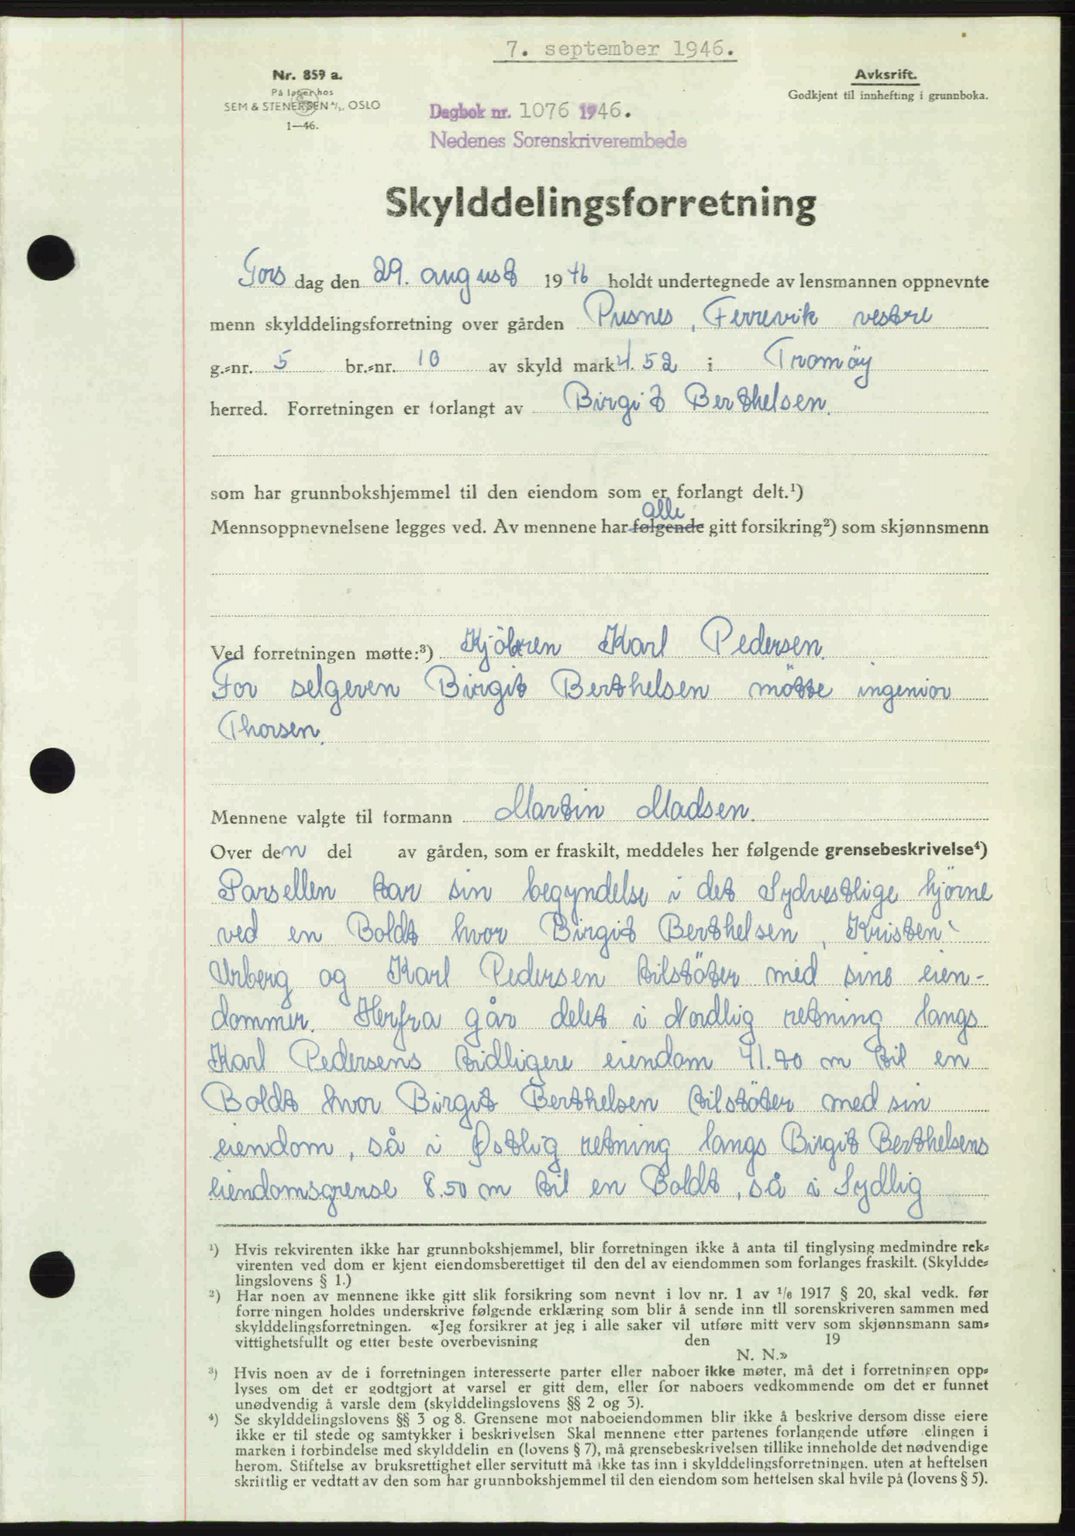 7. september 1946.
Nr. 859 a.
På lager hos
SEM & STENERSEN A/S, OSLO
1—46.
Avksrift.
Godkjent til innhefting i grunnboka.
Dagbok nr. 1076 1946.
Nedenes Sorenskriverembede
Skylddelingsforretning
Tors dag den 29. august 1946 holdt undertegnede av lensmannen oppnevnte
menn skylddelingsforretning over gården Pusnes, Ferrevik vestre
g.-nr. 5 br.-nr. 10 av skyld mark 4.52 i Tromöy
herred. Forretningen er forlangt av Birgit Berthelsen.
som har grunnbokshjemmel til den eiendom som er forlangt delt.¹)
alle
Mennsoppnevnelsene legges ved. Av mennene har følgende gitt forsikring²) som skjønnsmenn
Ved forretningen møtte:³) Kjöberen Karl Pedersen.
For selgeren Birgit Berthelsen mötte ingeniør
Thorsen.
Mennene valgte til formann Martin Madsen.
Over den del av gården, som er fraskilt, meddeles her følgende grensebeskrivelse⁴)
Parsellen tar sin begyndelse i det Sydvestlige hjörne
ved en Boldt hvor Birgit Berthelsen, Kristen
Urberg og Karl Pedersen tilstöter med sine eien-
dommer. Herfra går delet i Nordlig retning langs
Karl Pedersens tidligere eiendom 41.70 m til en
Boldt hvor Birgit Berthelsen tilstöter med sin
eiendom, så i Østlig retning langs Birgit Berthelsens
eiendomsgrense 8.50 m til en Boldt, så i Sydlig
¹) Hvis rekvirenten ikke har grunnbokshjemmel, blir forretningen ikke å anta til tinglysing medmindre rek-
virenten ved dom er kjent eiendomsberettiget til den del av eiendommen som forlanges fraskilt. (Skyldde-
lingslovens § 1.)
²) Har noen av mennene ikke gitt slik forsikring som nevnt i lov nr. 1 av ¹/₆ 1917 § 20, skal vedk. før
forretningen holdes underskrive følgende erklæring som blir å sende inn til sorenskriveren sammen med
skylddelingsforretningen. «Jeg forsikrer at jeg i alle saker vil utføre mitt verv som skjønnsmann sam-
vittighetsfullt og etter beste overbevisning den 19
N. N.»
³) Hvis noen av de i forretningen interesserte parter eller naboer ikke møter, må det i forretningen opp-
lyses om det er godtgjort at varsel er gitt dem, eller for naboers vedkommende om det er funnet
unødvendig å varsle dem (skylddelingslovens §§ 2 og 3).
⁴) Se skylddelingslovens §§ 3 og 8. Grensene mot naboeiendommen blir ikke å beskrive dersom disse eiere
ikke er til stede og samtykker i beskrivelsen Skal mennene etter partenes forlangende utføre elingen i
marken i forbindelse med skylddelin en (lovens § 7), må grensebeskrivelsen tillike inneholde det nødvendige
herom. Stiftelse av bruksrettighet eller servitutt må ikke tas inn i skylddelingsforretningen, uten at heftelsen
skriftlig er vedtatt av den som har grunnbokshjemmel til den eiendom som heftelsen skal hvile på (lovens § 5).